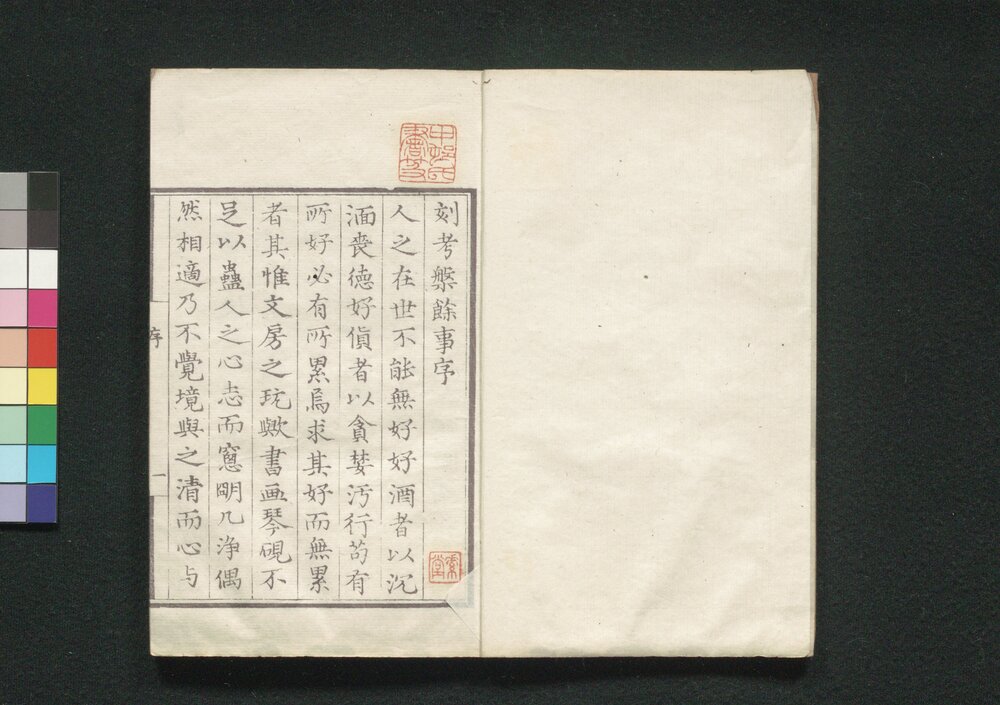 刻考槃餘事序
人之在世不能無好好酒者以沉
湎喪德好貨者以貪婪汚行茍有
所好必有所累焉求其好而無累
者其惟文房之玩歟書画琴硯不
足以蠱人之心志而窻明几淨偶
然相適乃不覺境與之清而心与
序
一